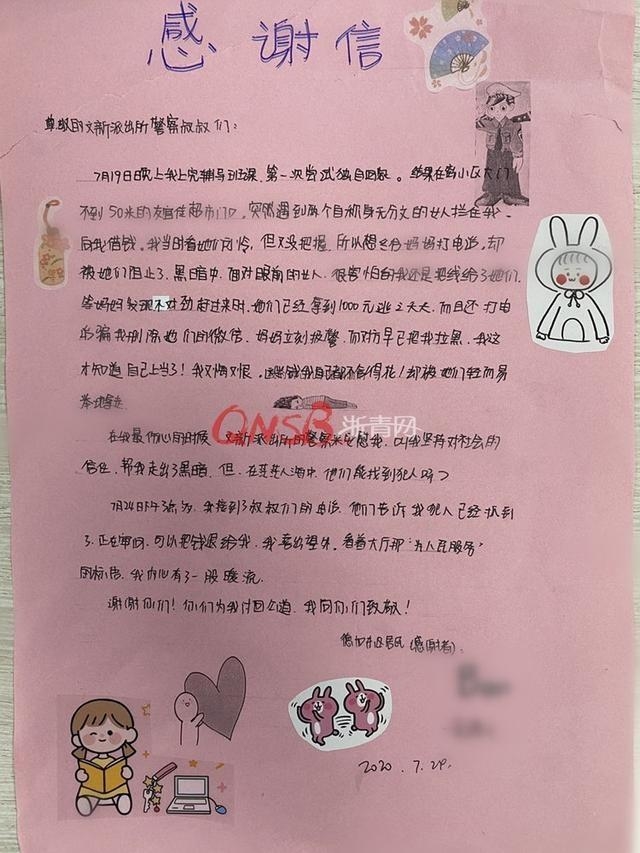 感谢信
尊敬的文新派出所警察叔叔们：
7月19日晚上我上完辅导班课，第一次尝试独自回家。结果在离小区大门
不到50米的友宜佳超市门口，突然遇到两个自称身无分文的女人拦住我，
向我借钱。我当时看她们可怜，但又没把握，所以想给妈妈打电话，却
被她们阻止了。黑暗中，面对眼前的女人，很害怕的我还是把钱给了她们。
等妈妈发现不对劲赶过来时，她们已经拿到1000元逃之夭夭，而且还打电
话骗我删除她们的微信，妈妈立刻报警，而对方早已把我拉黑，我这
才知道自己上当了！我又悔又恨。这些钱我自己都不舍得花！却被她们轻而易
举地拿走
QNSB浙青网
在我最伤心的时候，文新派出所的警察来安慰我，叫我坚持对社会的
信任，帮我走出了黑暗，但，在茫茫人海中，他们能找到犯人吗？
7月24日下午，我接到了叔叔们的电话，他们告诉我犯人已经抓到
了，正在审问，可以把钱还给我，我喜出望外。看着大厅那“为人民服务”
的标语，我内心有了一股暖流。
谢谢你们！你们为我讨回公道，我向你们致敬！
居民（感谢者）：
2020.7.29.